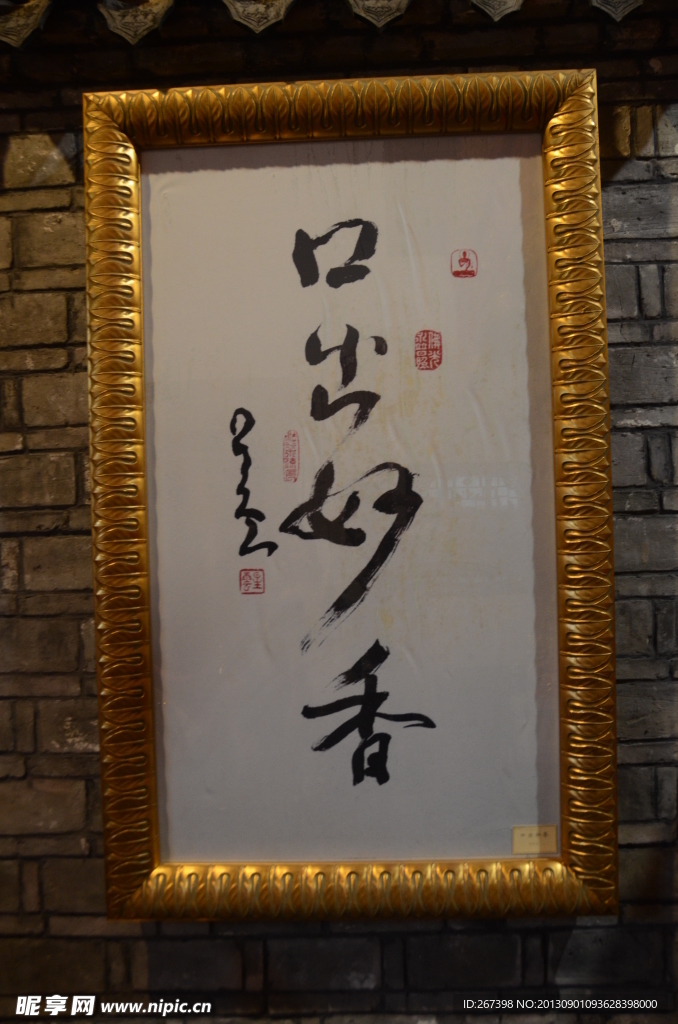 口出妙香
星云
昵享网 www.nipic.cn
ID:267398 NO:20130901093628398000